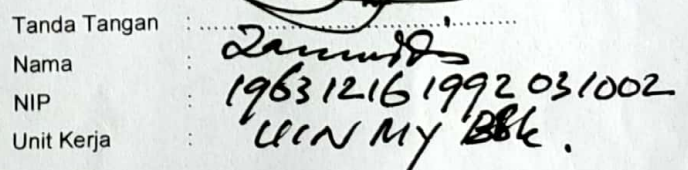 Tanda Tangan :
Nama :
NIP : 19631216 1992 031002
Unit Kerja : UIN MY BSk.